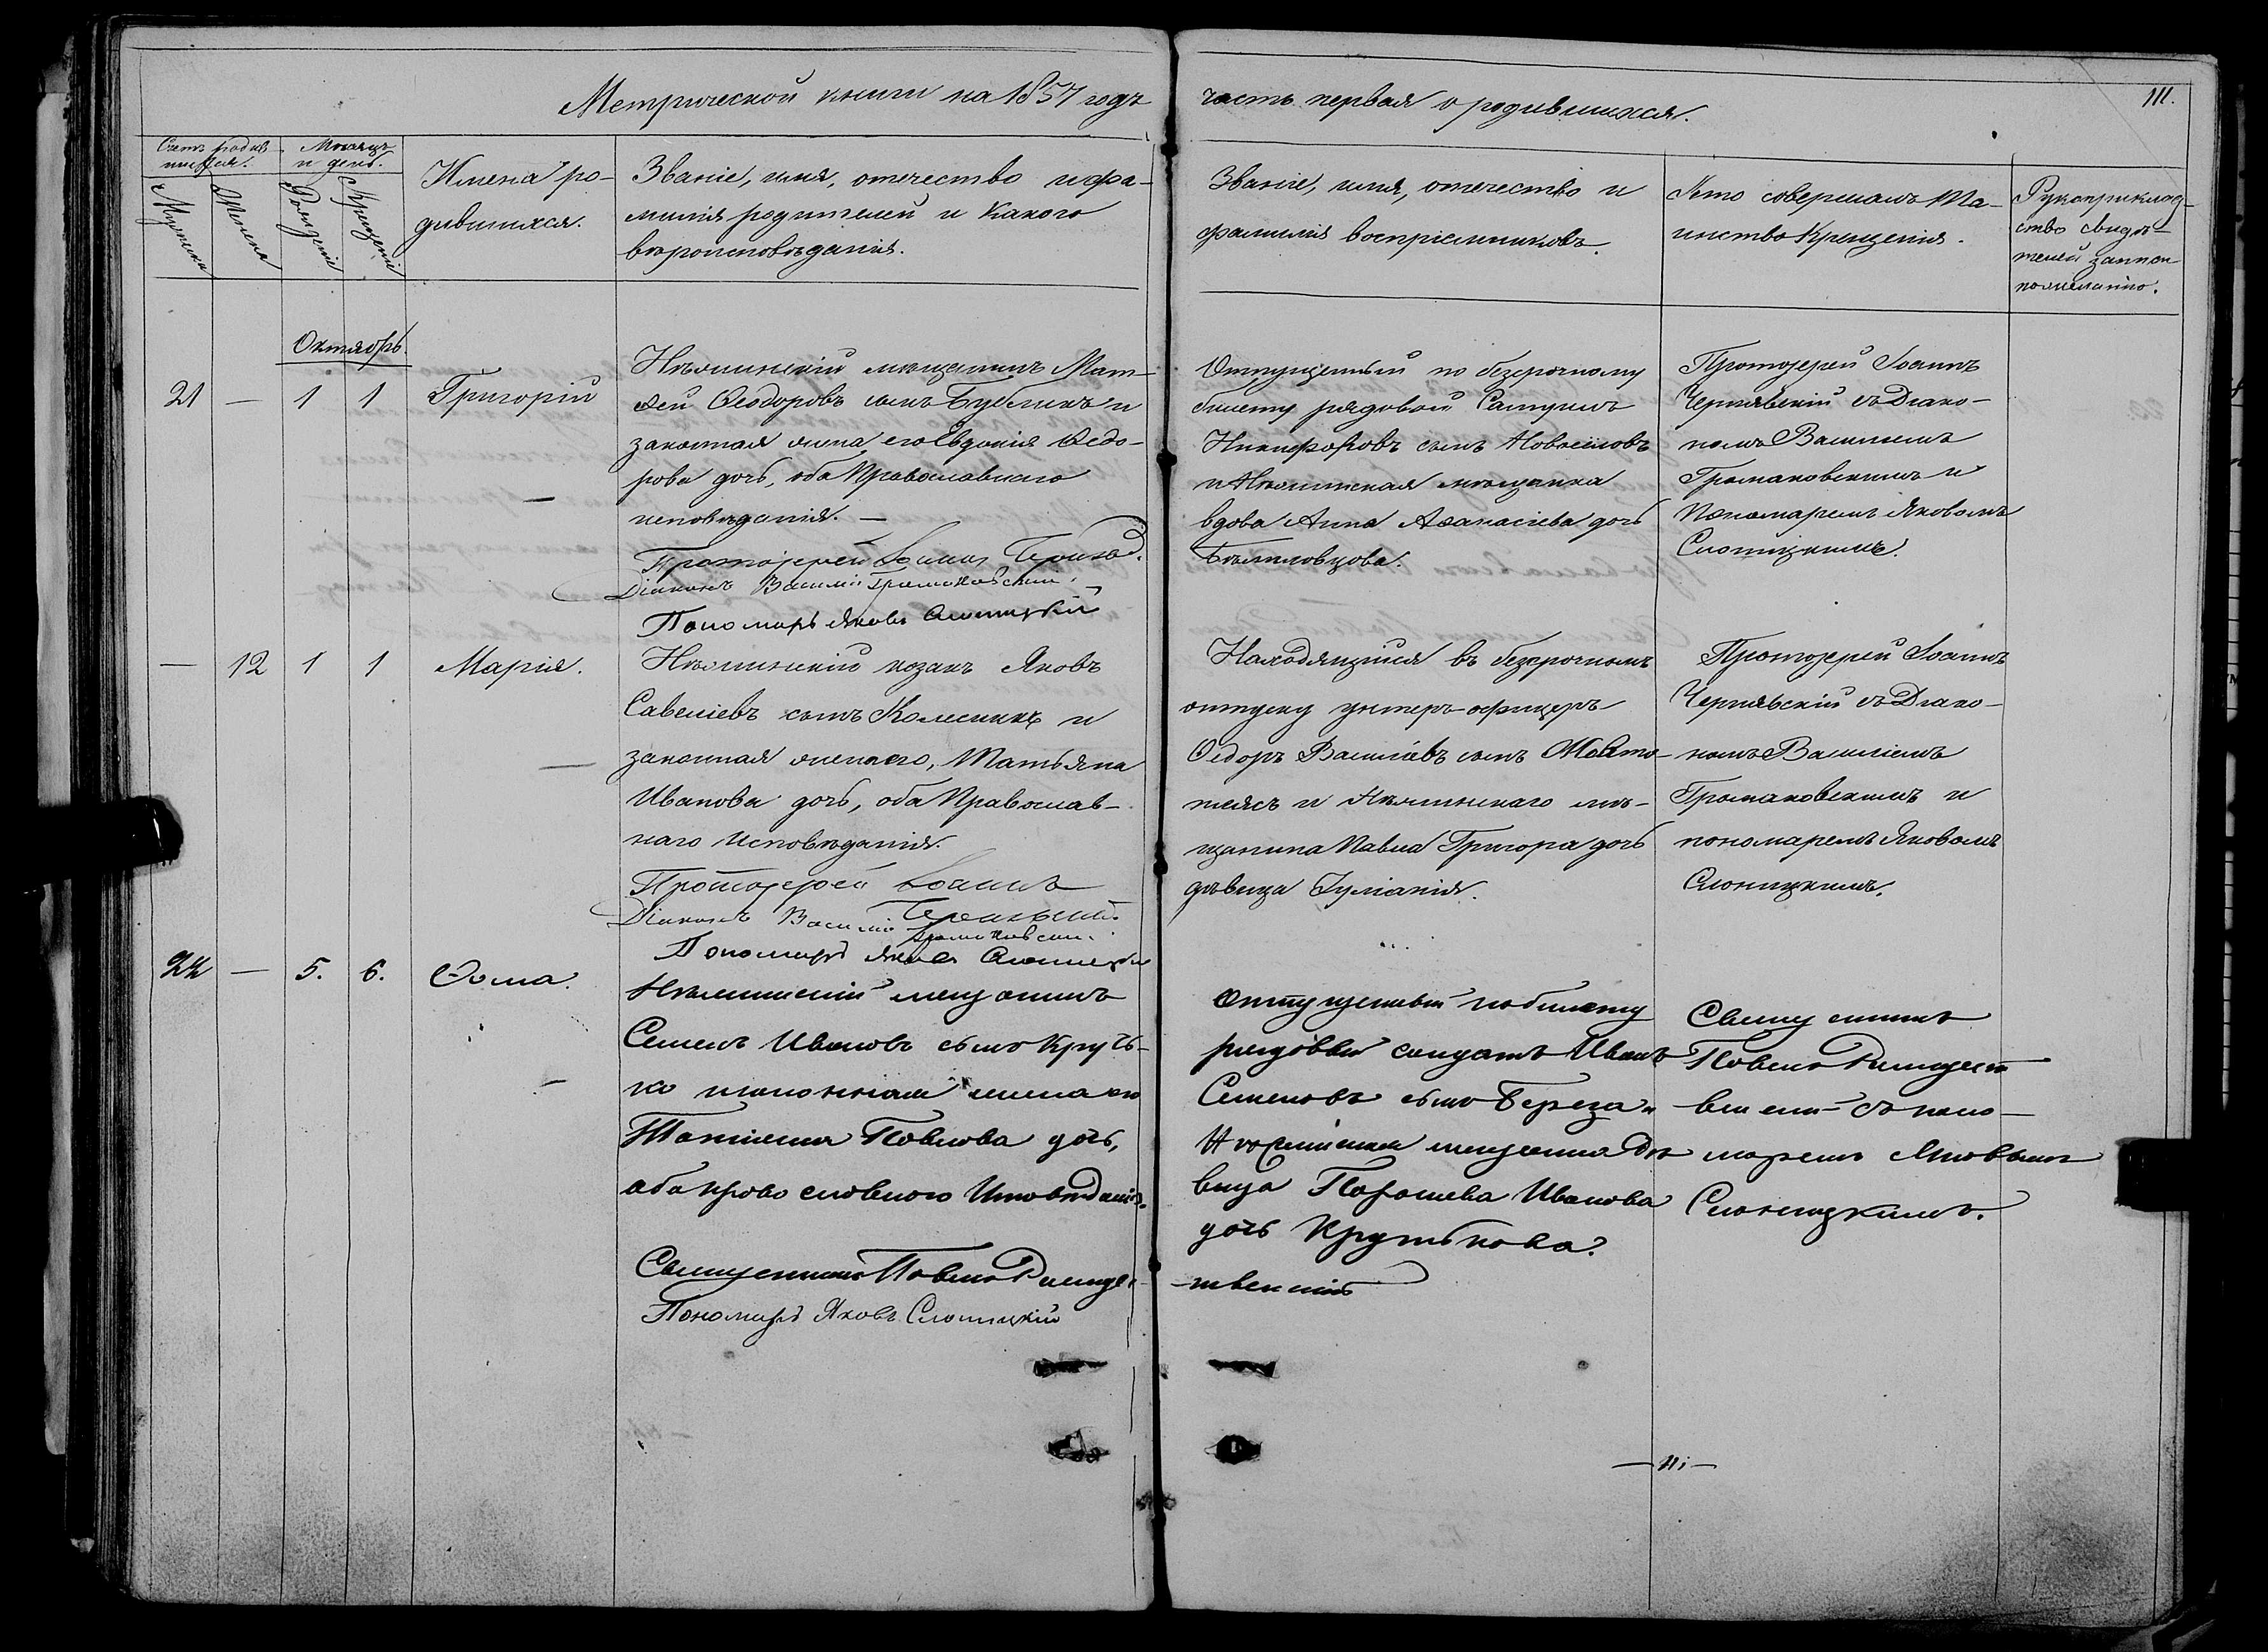 Метрической книги на 1857 годъ
часть первая о родившихся.
111.
Счетъ родив
шихся.
Мѣсяцъ
и день.
Мужеска
Женска
Рожденіе
Крещеніе
Имена ро-
дившихся.
Званіе, имя, отечество и фа-
милія родителей и какого
вѣроисповѣданія.
Званіе, имя, отечество и
фамилія воспріемниковъ.
Кто совершалъ Та-
инство Крещенія.
Рукоприклад-
ство свидѣ-
телей записи
по желанію.
Октябрь
21 — 1 1 Григорій
Нѣжинскій мѣщанинъ Мат-
ѳей Ѳеодоровъ сынъ Бубликъ и
законная жена его Евдокія Ѳедо-
рова дочь, оба Православнаго
исповѣданія. —
Протоіерей Іоаннъ
Діаконъ Василій Громаковскій
Пономарь Яковъ Слоницкій
Отпущенный по безсрочному
билету рядовой
Никифоровъ сынъ
и Нѣжинская мѣщанка
вдова Анна Аѳанасіева дочь
Протоіерей Іоаннъ
Чернявскій съ Діако-
номъ Василіемъ
Громаковскимъ и
Пономаремъ Яковомъ
Слоницкимъ.
— 12 1 1 Марія.
Нѣжинскій козакъ Яковъ
Савеліевъ сынъ Колесникъ и
законная жена его, Татьяна
Иванова дочь, оба Православ-
наго Исповѣданія.
Протоіерей Іоаннъ
Чернявскій
Діаконъ Василій Громаковскій
Пономарь Яковъ Слоницкій
Находящійся въ безсрочномъ
отпуску унтеръ-офицеръ
Ѳедоръ Василіевъ сынъ
и Нѣжинскаго мѣ-
щанина Павла Григора дочь
дѣвица Іуліанія.
Протоіерей Іоаннъ
Чернявскій съ Діако-
номъ Василіемъ
Громаковскимъ и
пономаремъ Яковомъ
Слоницкимъ.
22 — 5. 6. Ѳома.
Нѣжинскій мещанинъ
Семенъ Ивановъ сынъ Круть-
ко изаконная жена его
Татіяна Павлова дочь,
оба православного Исповѣданія.
Священникъ Павелъ Рождес-
твенскій
Пономарь Яковъ Слоницкій
Отпущеный побилету
рядовый солдатъ Иванъ
Семеновъ сынъ Береза и
Нѣжинская мещанка дѣ
вица Иванова
дочь Крутькова.
Священникъ
Павелъ Рождест
венскій съ поно-
маремъ Яковомъ
Слоницкимъ.